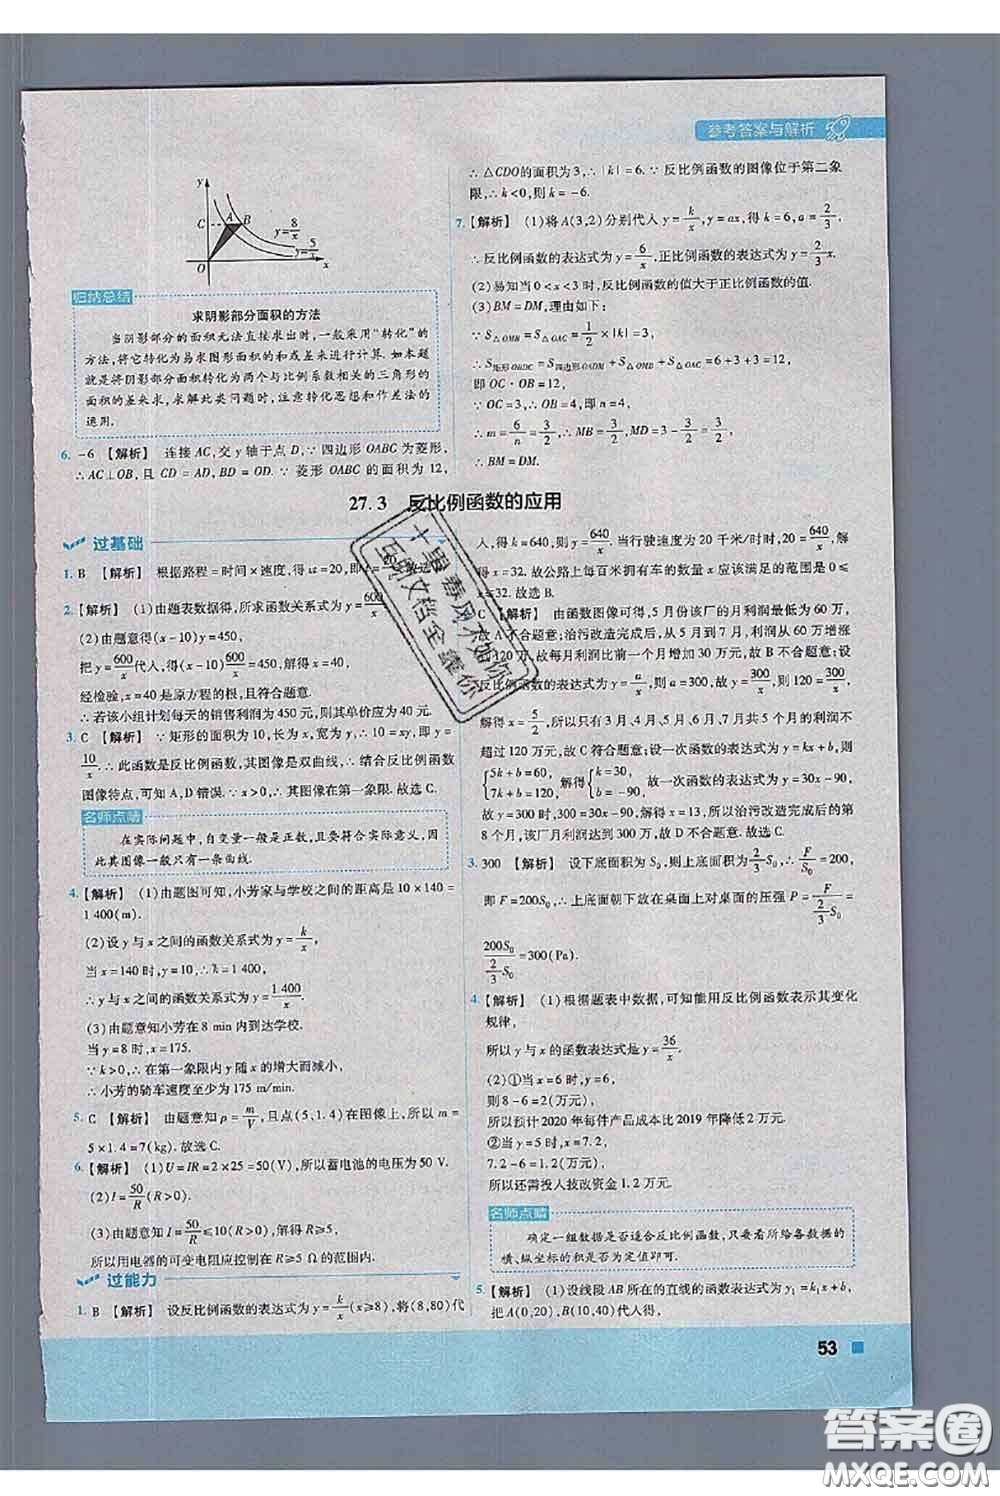 参考答案与解析
y
C
A
B
y=8/x
y=5/x
O
x
归纳总结
求阴影部分面积的方法
当阴影部分的面积无法直接求出时,一般采用“转化”的
方法,将它转化为易求图形面积的和或差来进行计算.如本题
就是将阴影部分面积转化为两个与比例系数相关的三角形的
面积的差来求,求解此类问题时,注意转化思想和作差法的
运用.
6. -6 【解析】 连接 AC,交 y 轴于点 D,∵四边形 OABC 为菱形,
∴AC⊥OB,且 CD=AD,BD=OD.∵菱形 OABC 的面积为 12,
∴△CDO的面积为3,∴|k|=6.∵反比例函数的图像位于第二象
限,∴k<0,则k=-6.
7. 【解析】 (1)将A(3,2)分别代入 y=k/x,y=ax,得 k=6,a=2/3,
∴反比例函数的表达式为 y=6/x,正比例函数的表达式为 y=2/3x.
(2)易知当 0<x<3 时,反比例函数的值大于正比例函数的值.
(3)BM=DM,理由如下:
∵S△OMB=S△OAC=1/2×|k|=3,
∴S矩形OBDC=S四边形OADM+S△OMB+S△OAC=6+3+3=12,
即 OC·OB=12,
∵OC=3,∴OB=4,即 n=4,
∴m=6/n=3/2,∴MB=3/2,MD=3-3/2=3/2,∴MB=MD.
27.3 反比例函数的应用
过基础
1. B 【解析】 根据路程=时间×速度,得 vt=20,即
2. 【解析】 (1)由题表数据得,所求函数关系式为 y=600/x
(2)由题意得(x-10)y=450,
把 y=600/x代入,得(x-10)600/x=450,
经检验,x=40 是原方程的根,且符合题意.
∴若该小组计划每天的销售利润为 450 元,则其单价应为 40 元.
3. C 【解析】 ∵矩形的面积为 10,长为 x,宽为 y,∴10=xy,即 y=
10/x.∴此函数是反比例函数,其图像是双曲线,∴结合反比例函数
图像特点,可知 A,D 错误.∵x>0,∴其图像在第一象限.故选 C.
名师点睛
在实际问题中,自变量一般是正数,且要符合实际意义,因
此其图像一般只有一条曲线.
4. 【解析】 (1)由题图可知,小芳家与学校之间的距离是 10×140=
1 400(m).
(2)设 y 与 x 之间的函数关系式为 y=k/x,
当 x=140 时,y=10,∴k=1 400,
∴y 与 x 之间的函数关系式为 y=1 400/x.
(3)由题意知小芳在 8 min 内到达学校.
当 y=8 时,x=175.
∵k>0,∴在第一象限内 y 随 x 的增大而减小,
∴小芳的骑车速度至少为 175 m/min.
5. C 【解析】 由题意知 ρ=m/V,且点(5,1.4)在图像上,所以 m=
5×1.4=7(kg).故选 C.
6. 【解析】 (1)U=IR=2×25=50(V),所以蓄电池的电压为 50 V.
(2)I=50/R(R>0).
(3)由题意知 I=50/R≤10(R>0),解得 R≥5,
所以用电器的可变电阻应控制在 R≥5 Ω 的范围内.
过能力
1. B 【解析】 设反比例函数的表达式为 y=k/x(x≥8),将(8,80)代
入,得 k=640,则 y=640/x.当行驶速度为 20 千米/时时,20=640/x,解
得 x=32.故公路上每百米拥有车的数量 x 应该满足的范围是 0≤
x≤32.故选 B.
C 【解析】 由函数图像可得,5 月份该厂的月利润最低为 60 万,
故 A 不合题意;治污改造完成后,从 5 月到 7 月,利润从 60 万增涨
到120万,故每月利润比前一个月增加 30 万,故 B 不合题意;设
反比例函数的表达式为 y=a/x,则 a=300,故 y=300/x,则 120=300/x,
解得 x=5/2,所以只有 3 月、4 月、5 月、6 月共 4 个月的利润不
超过 120 万元,故 C 符合题意;设一次函数的表达式为 y=kx+b,则
{5k+b=60, 7k+b=120, 解得{k=30, b=-90, 故一次函数的表达式为 y=30x-90,
故 y=300 时,300=30x-90,解得 x=13,所以治污改造完成后的第
8 个月,该厂月利润达到 300 万,故 D 不合题意.故选 C.
3. 300 【解析】 设下底面积为 S0,则上底面积为2/3S0,∴F/S0=200,
即 F=200S0,∴上底面朝下放在桌面上对桌面的压强 P=F/(2/3 S0)=
200S0/(2/3 S0)=300(Pa).
4. 【解析】 (1)根据题表中数据,可知能用反比例函数表示其变化
规律,
所以 y 与 x 的函数表达式是 y=36/x.
(2)①当 x=6 时,y=6,
则 8-6=2(万元),
所以预计 2020 年每件产品成本比 2019 年降低 2 万元.
②当 y=5 时,x=7.2,
7.2-6=1.2(万元),
所以还需投入技改资金 1.2 万元.
名师点睛
确定一组数据是否适合反比例函数,只要看所给各数据的
横、纵坐标的积是否为定值即可.
5. 【解析】 (1)设线段 AB 所在的直线的函数表达式为 y1=k1x+b,
把 A(0,20),B(10,40)代入得,
53
十里春风不如你
互刷文档全靠你
答案圈
MXQE.COM